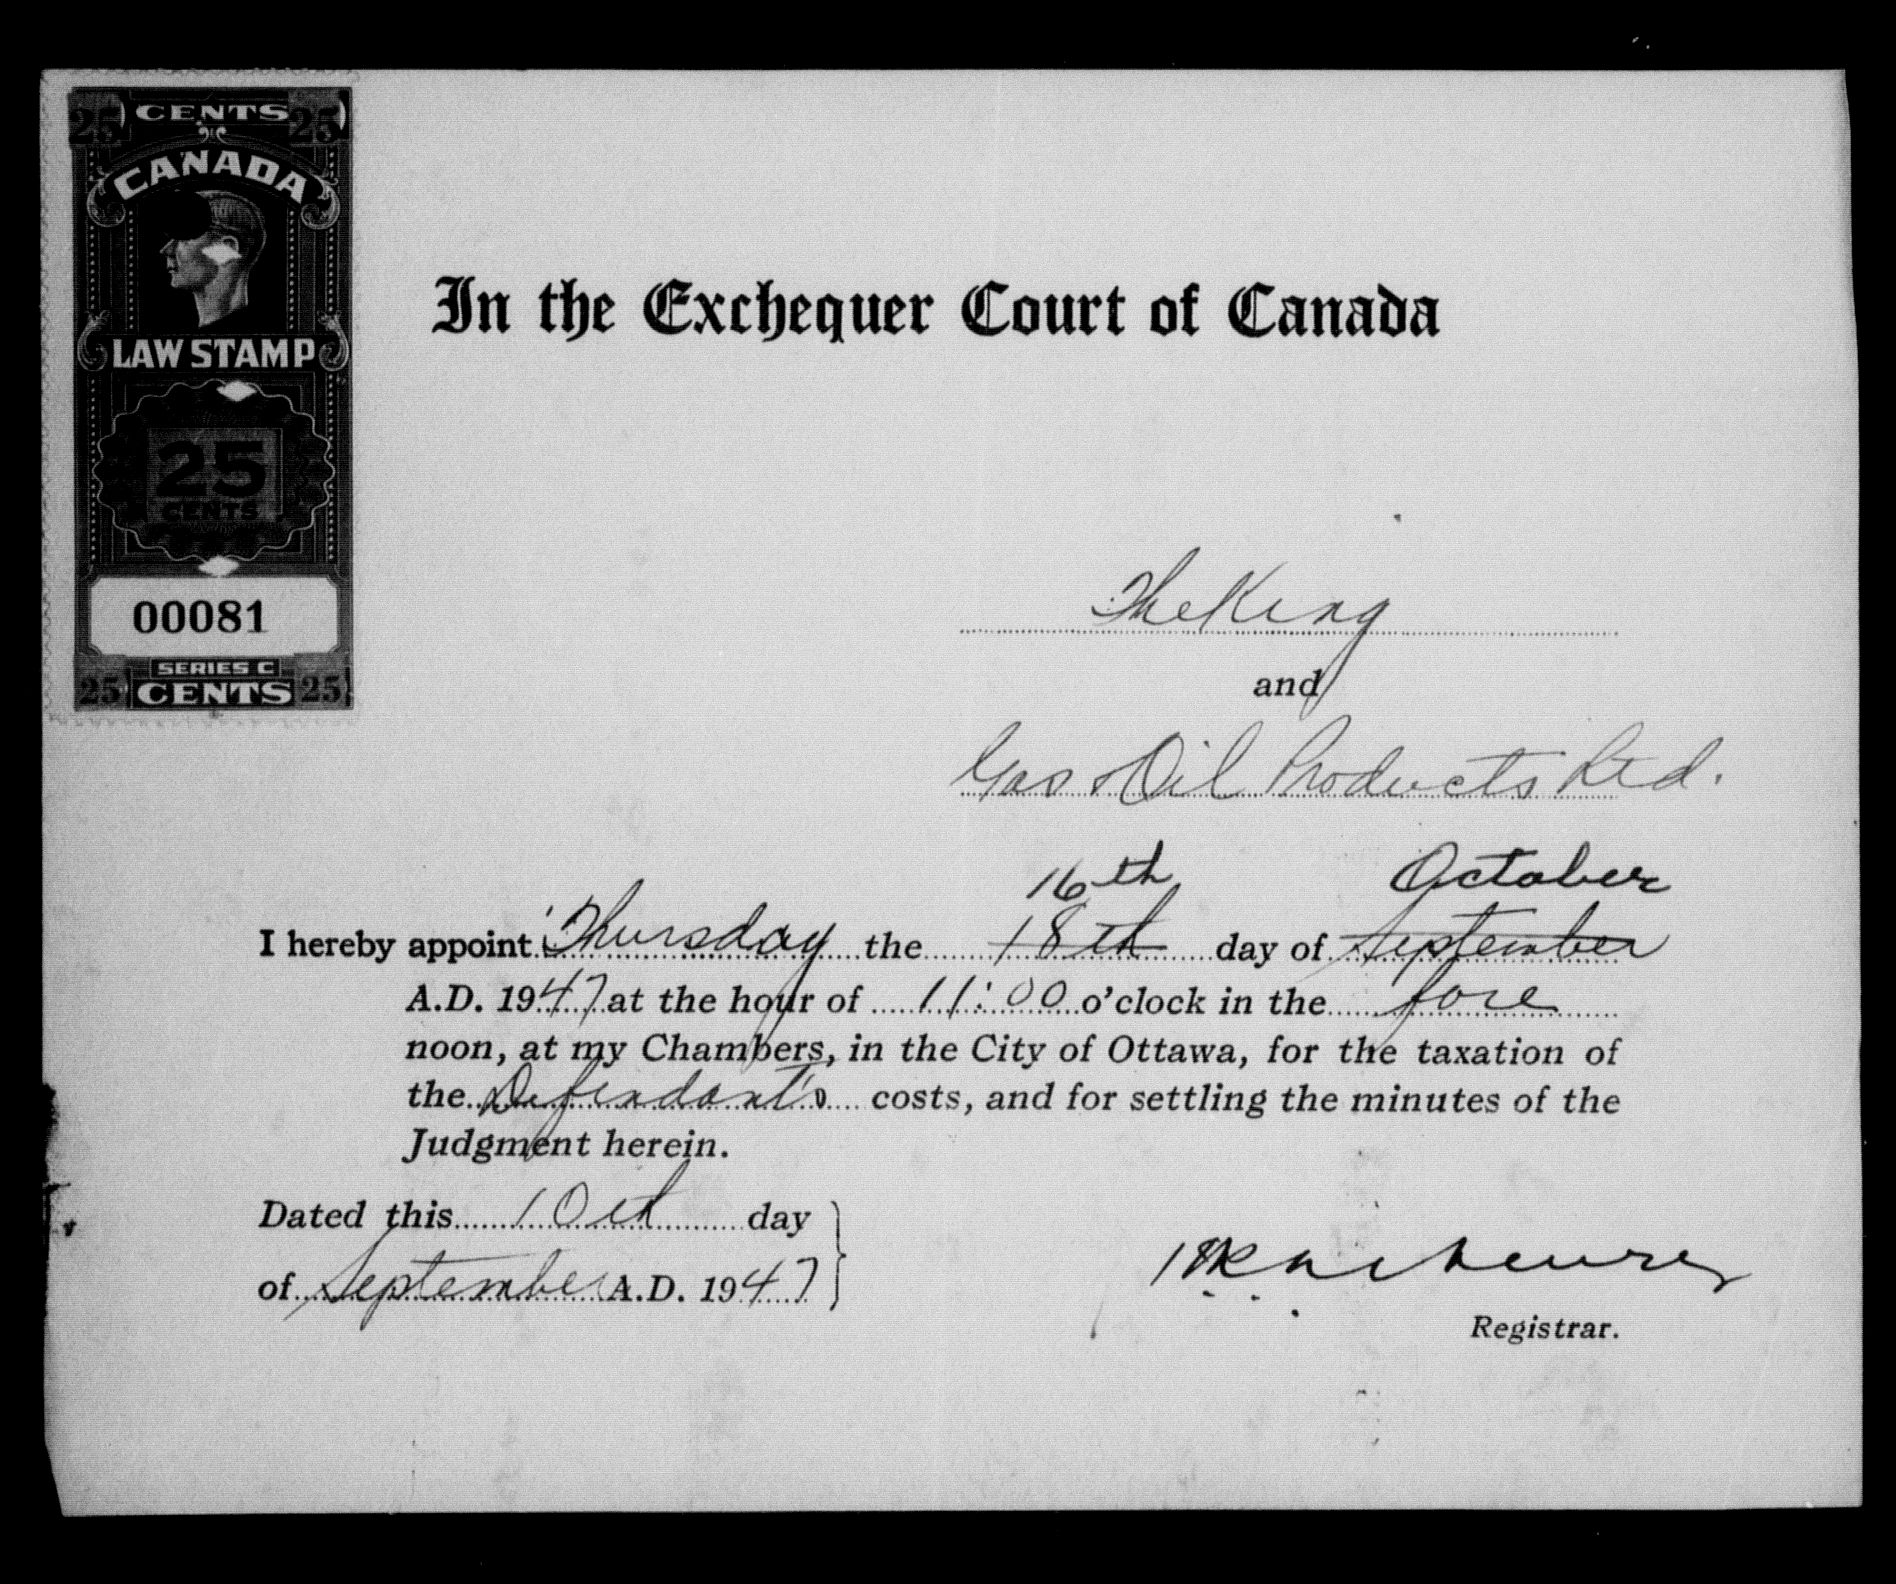 25 CENTS 25
CANADA
LAW STAMP
25
CENTS
00081
SERIES C
25 CENTS 25
In the Exchequer Court of Canada
The King
and
Gas & Oil Products Ltd.
16th October
I hereby appoint Thursday the 18th day of September
A.D. 1947 at the hour of 11:00 o'clock in the fore
noon, at my Chambers, in the City of Ottawa, for the taxation of
the Defendant's costs, and for settling the minutes of the
Judgment herein.
Dated this 10th day
of September A.D. 1947
Registrar.